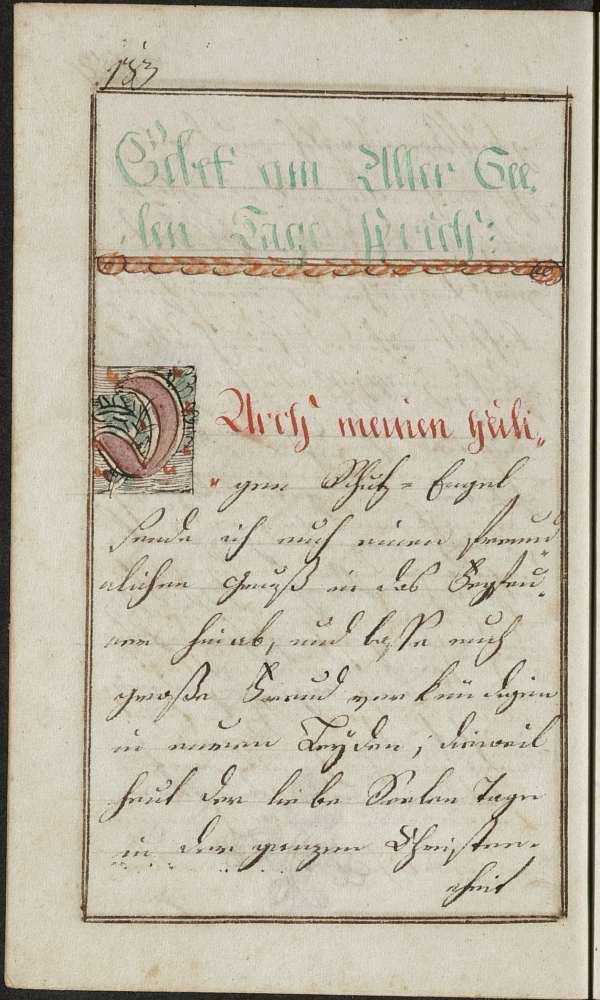 133
Gebet am Aller See,
len Tage sprich:
Durch meinen heili„
„gen Schutz=Engel
sende ich euch einen freund
dlichen Gruß in das Fegfeu„
uer hinab, und lasse euch
große Freud verkündigen
in eueren Leyden; dieweil
heut der liebe Seelen Tage
in der ganzen Christen„
heit